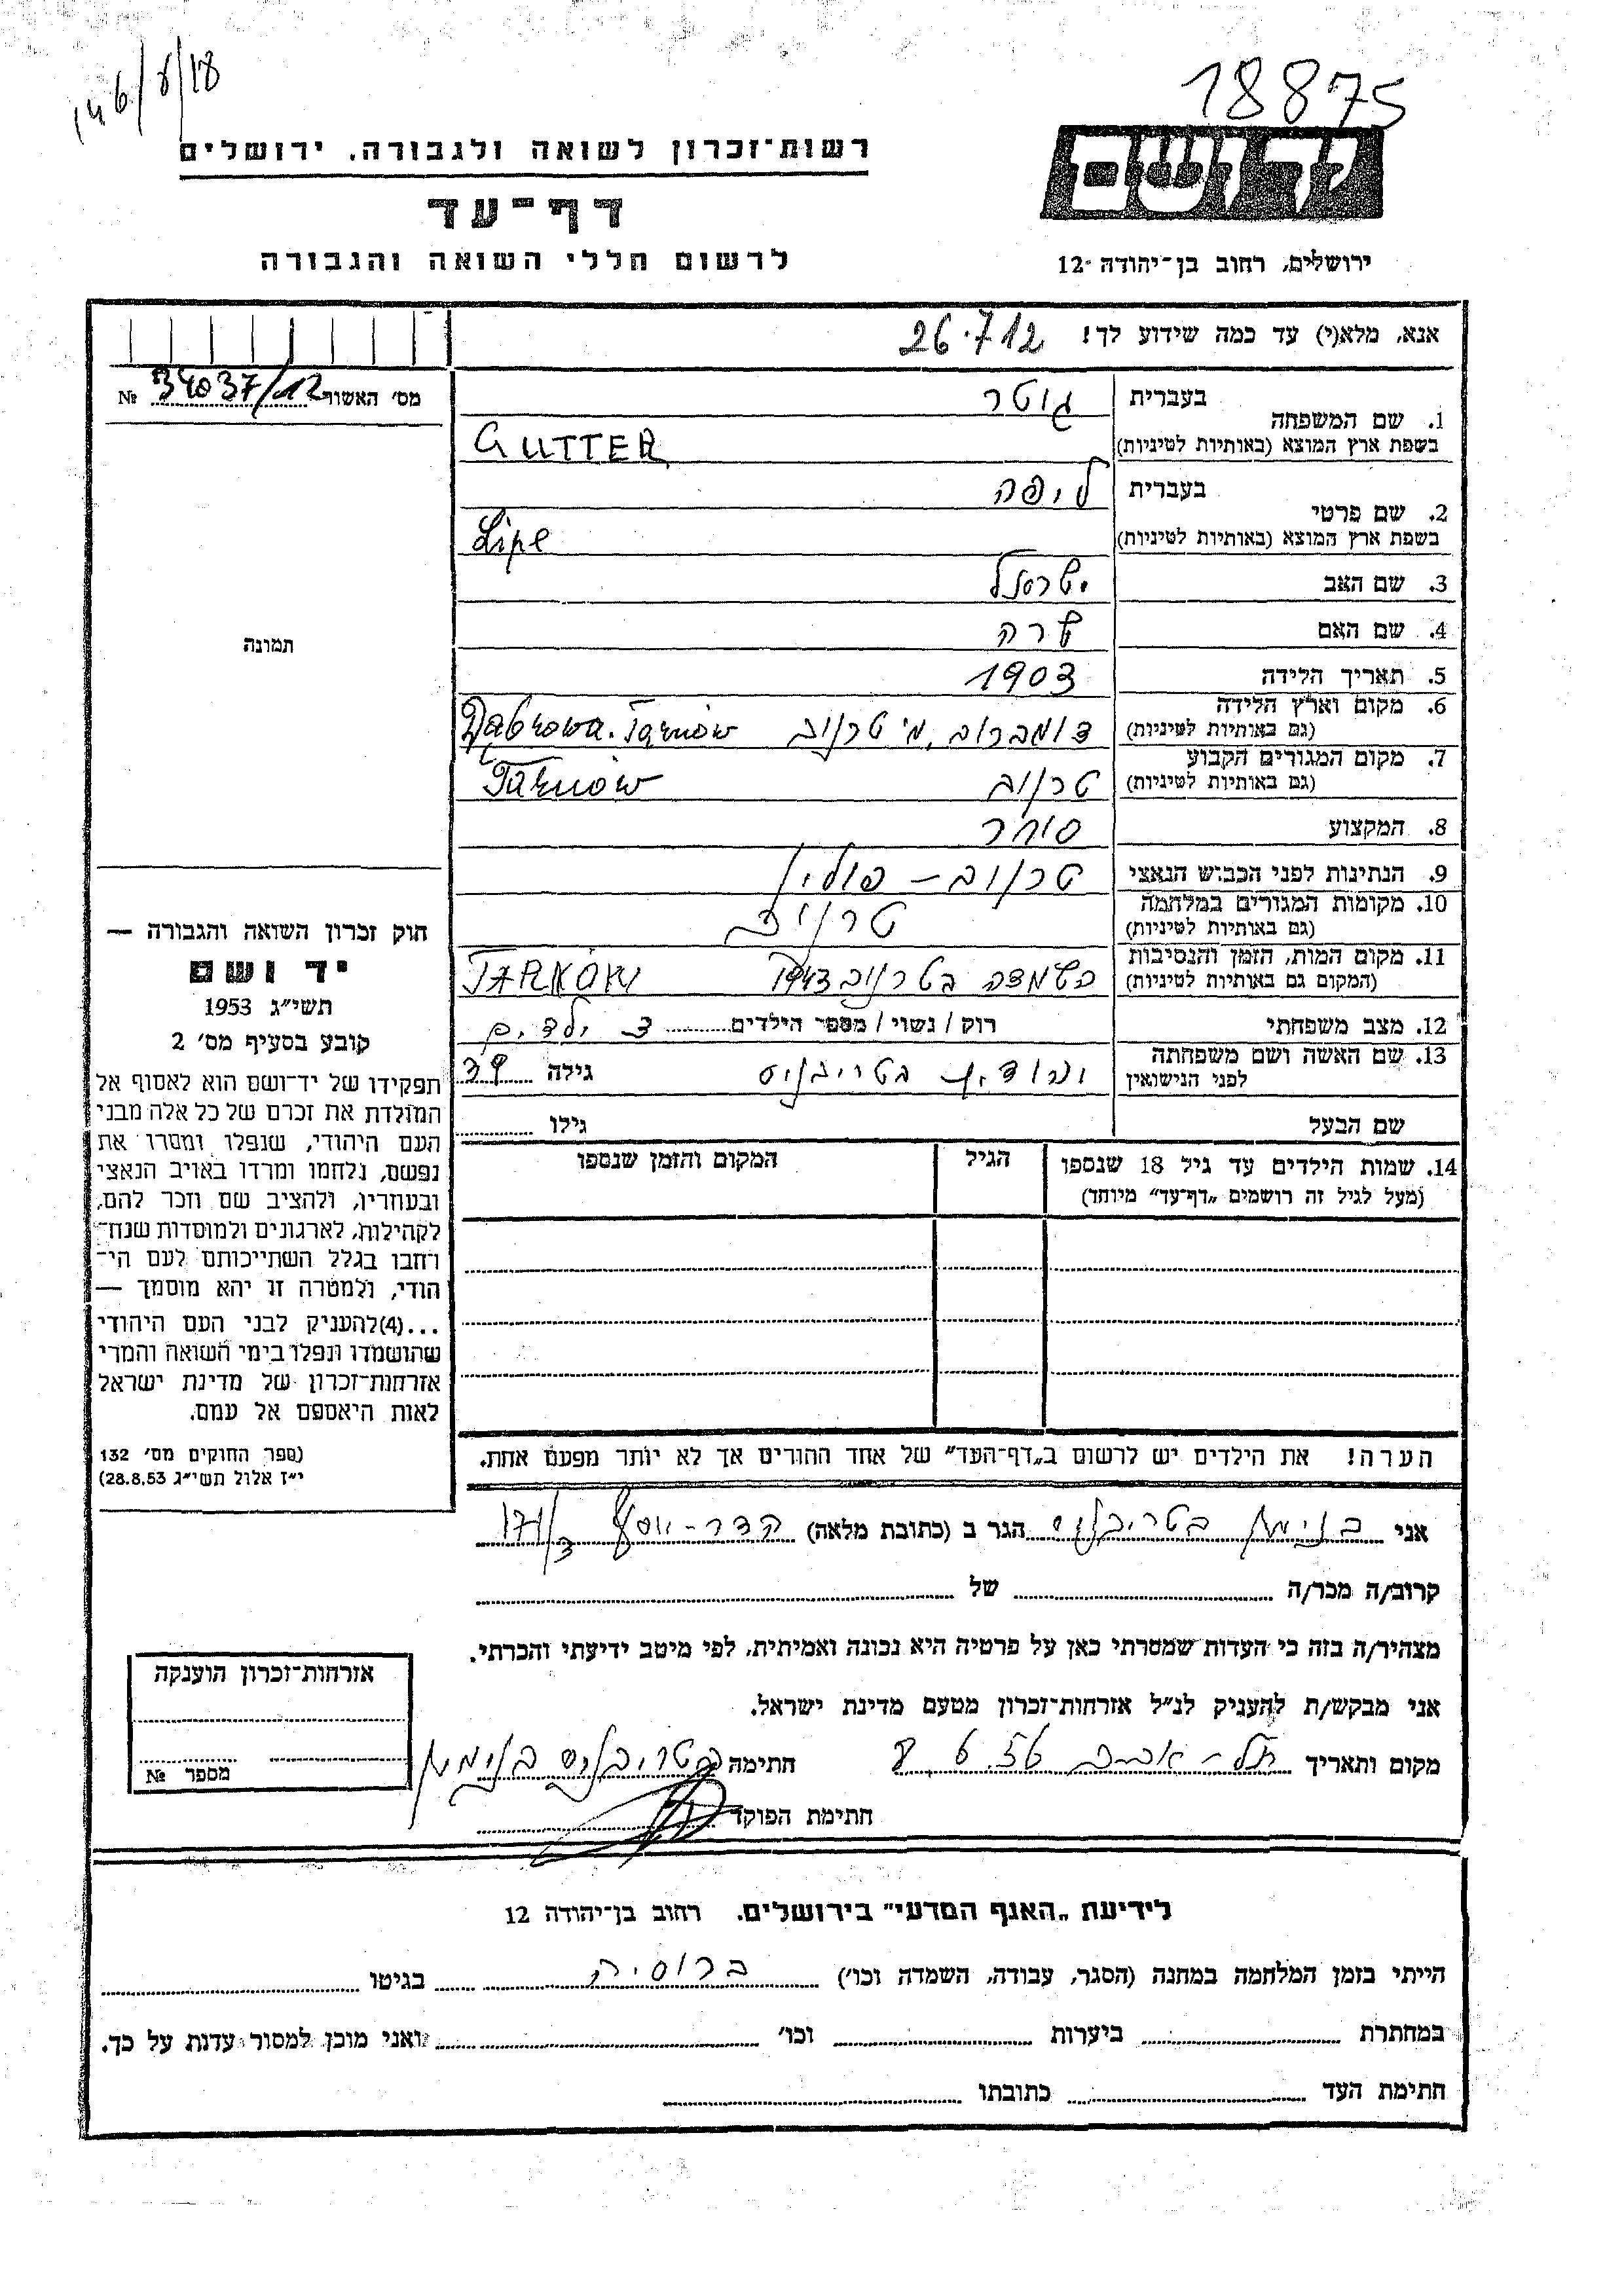 146/8/18
18875
רשות־זכרון לשואה ולגבורה, ירושלים
יד ושם
דף־עד
לרשום חללי השואה והגבורה
ירושלים, רחוב בן־יהודה 12
אנא, מלא(י) עד כמה שידוע לך! 26.712
מס׳ האשור 34037/12 №
1. שם המשפחה
בעברית גוטר
בשפת ארץ המוצא (באותיות לטיניות) GUTTER
2. שם פרטי
בעברית ליפה
בשפת ארץ המוצא (באותיות לטיניות) Lipe
3. שם האב ישראל
4. שם האם שרה
תמונה
5. תאריך הלידה 1903
6. מקום וארץ הלידה
(גם באותיות לטיניות) דומברוב, מ׳ טרנוב Dąbrowa. Tarnów
7. מקום המגורים הקבוע
(גם באותיות לטיניות) טרנוב Tarnów
8. המקצוע סוחר
9. הנתינות לפני הכבוש הנאצי טרנוב – פולין
10. מקומות המגורים במלחמה
(גם באותיות לטיניות) טרנוב
11. מקום המות, הזמן והנסיבות
(המקום גם באותיות לטיניות) השמדה בטרנוב 1943 TARNÓW
12. מצב משפחתי רוק / נשוי / מספר הילדים 3 ילדים
13. שם האשה ושם משפחתה
לפני הנישואין בטריבניס גילה 39
שם הבעל גילו
14. שמות הילדים עד גיל 18 שנספו
(מעל לגיל זה רושמים „דף־עד״ מיוחד)
הגיל
המקום והזמן שנספו
חוק זכרון השואה והגבורה —
יד ושם
תשי״ג 1953
קובע בסעיף מס׳ 2
תפקידו של יד־ושם הוא לאסוף אל
המולדת את זכרם של כל אלה מבני
העם היהודי, שנפלו ומסרו את
נפשם, נלחמו ומרדו באויב הנאצי
ובעוזריו, ולהציב שם וזכר להם,
לקהילות, לארגונים ולמוסדות שנח־
רחבו בגלל השתייכותם לעם הי־
הודי, ולמטרה זו יהא מוסמך —
...(4)להעניק לבני העם היהודי
שהושמדו ונפלו בימי השואה והמרי
אזרחות־זכרון של מדינת ישראל
לאות היאספם אל עמם.
(ספר החוקים מס׳ 132
י״ז אלול תשי״ג 28.8.53)
הערה! את הילדים יש לרשום ב„דף־העד״ של אחד ההורים אך לא יותר מפעם אחת.
אני בנימין בטריבניס הגר ב (כתובת מלאה) 171/3
קרוב/ה מכר/ה של
מצהיר/ה בזה כי העדות שמסרתי כאן על פרטיה היא נכונה ואמיתית, לפי מיטב ידיעתי והכרתי.
אני מבקש/ת להעניק לנ״ל אזרחות־זכרון מטעם מדינת ישראל.
מקום ותאריך תל-אביב 8.6.56 חתימה בטריבניס בנימין
חתימת הפוקד
אזרחות־זכרון הוענקה
מספר №
לידיעת „האגף המדעי״ בירושלים. רחוב בן־יהודה 12
הייתי בזמן המלחמה במחנה (הסגר, עבודה, השמדה וכו׳) ברוסיה בגיטו
במחתרת ביערות וכו׳ ואני מוכן למסור עדות על כך.
חתימת העד כתובתו